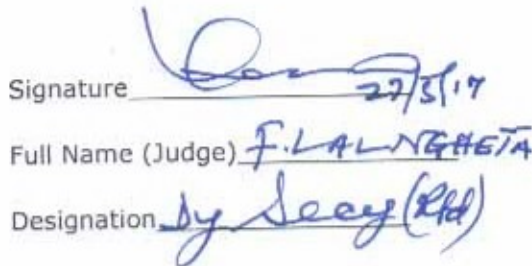 Signature 27/5/17
Full Name (Judge) F. LALNGHETA
Designation Dy Secy (Rtd)